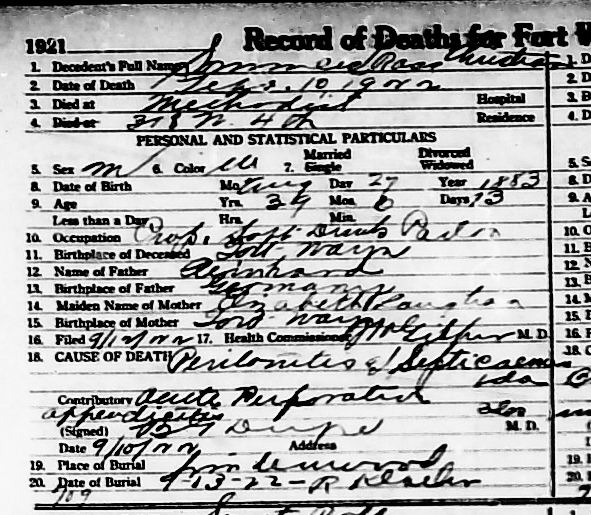 1921 Record of Deaths for Fort W
1. Decedent's Full Name Ross
2. Date of Death Sep. 10 1922
3. Died at Methodist Hospital
4. Died at 318 N. 4th Residence
PERSONAL AND STATISTICAL PARTICULARS
Married Divorced
5. Sex M 6. Color W 7. Single Widowed
8. Date of Birth Mo. Aug Day 27 Year 1883
9. Age Yrs. 39 Mos. 0 Days 13
Less than a Day Hrs. Min.
10. Occupation Prop. Soft Drink Parlor
11. Birthplace of Deceased Fort Wayne
12. Name of Father
13. Birthplace of Father Germany
14. Maiden Name of Mother Elizabeth
15. Birthplace of Mother Fort Wayne
16. Filed 9/12/22 17. Health Commissioner M. D.
18. CAUSE OF DEATH Peritonitis & Septicaemia
Contributory Acute Perforative
appendicitis
(Signed) M. D.
Date 9/10/22 Address
19. Place of Burial Lindenwood
20. Date of Burial 9-13-22- R Klaehn
109